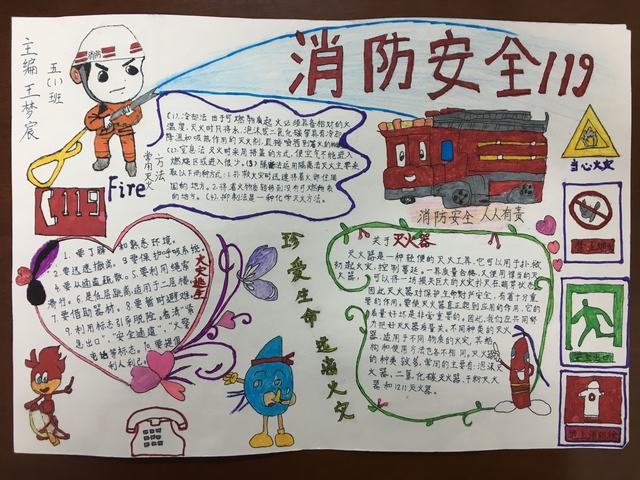 消防安全119
主编 王梦宸
五(1)班
消防
常用灭火方法
(1).冷却法 由于可燃物质起火必须具备相对的火
温度,灭火时只得水,泡沫或二氧化碳等具有冷却
降温和吸热作用的灭火剂,直接喷洒到着火的物
(2).窒息法 灭火时采用捂盖的方式,使空气不能进入
燃烧区或进入很少。(3)隔离法 应用隔离法灭火主要采
取以下两种方式:1.扑救火灾时迅速将着火部位周
围的 2.将着火物质转到没有可燃物质
的地方。(4).抑制法是一种化学灭火方法。
119
Fire
当心火灾
消防安全 人人有责
火灾逃生
1.要了解和熟悉环境。
2.要迅速撤离。3.要保护呼吸系统。
4.要从通道疏散。5.要利用绳索
滑行。6.是低层跳离适用于二层楼。
7.要借助器材。8.要暂时避难。
9.利用标志引导脱险。看清"紧
急出口"、"安全通道"、"火警
电话等标志。10.要提倡
利人利己。
珍爱生命 远离火灾
关于灭火器
灭火器是一种轻便的灭火工具,它可以用于扑救
初起火灾,控制蔓延。一具质量合格,又使用得当的灭
火器,可以将一场损失巨大的火灾扑灭在萌芽状态
因此灭火器对保护生命财产安全,有着十分重
要的作用。要使灭火器真正起到应用的作用,它的
质量好坏是非常重要的。因此,我们应共同努
力把好灭火器质量关。不同种类的灭火
器,适用于不同物质的火灾,其结
构和使用方法也各不相同。灭火器
的种类较多,常用的主要有:泡沫灭火
器、二氧化碳灭火器、干粉灭火
器和1211灭火器。